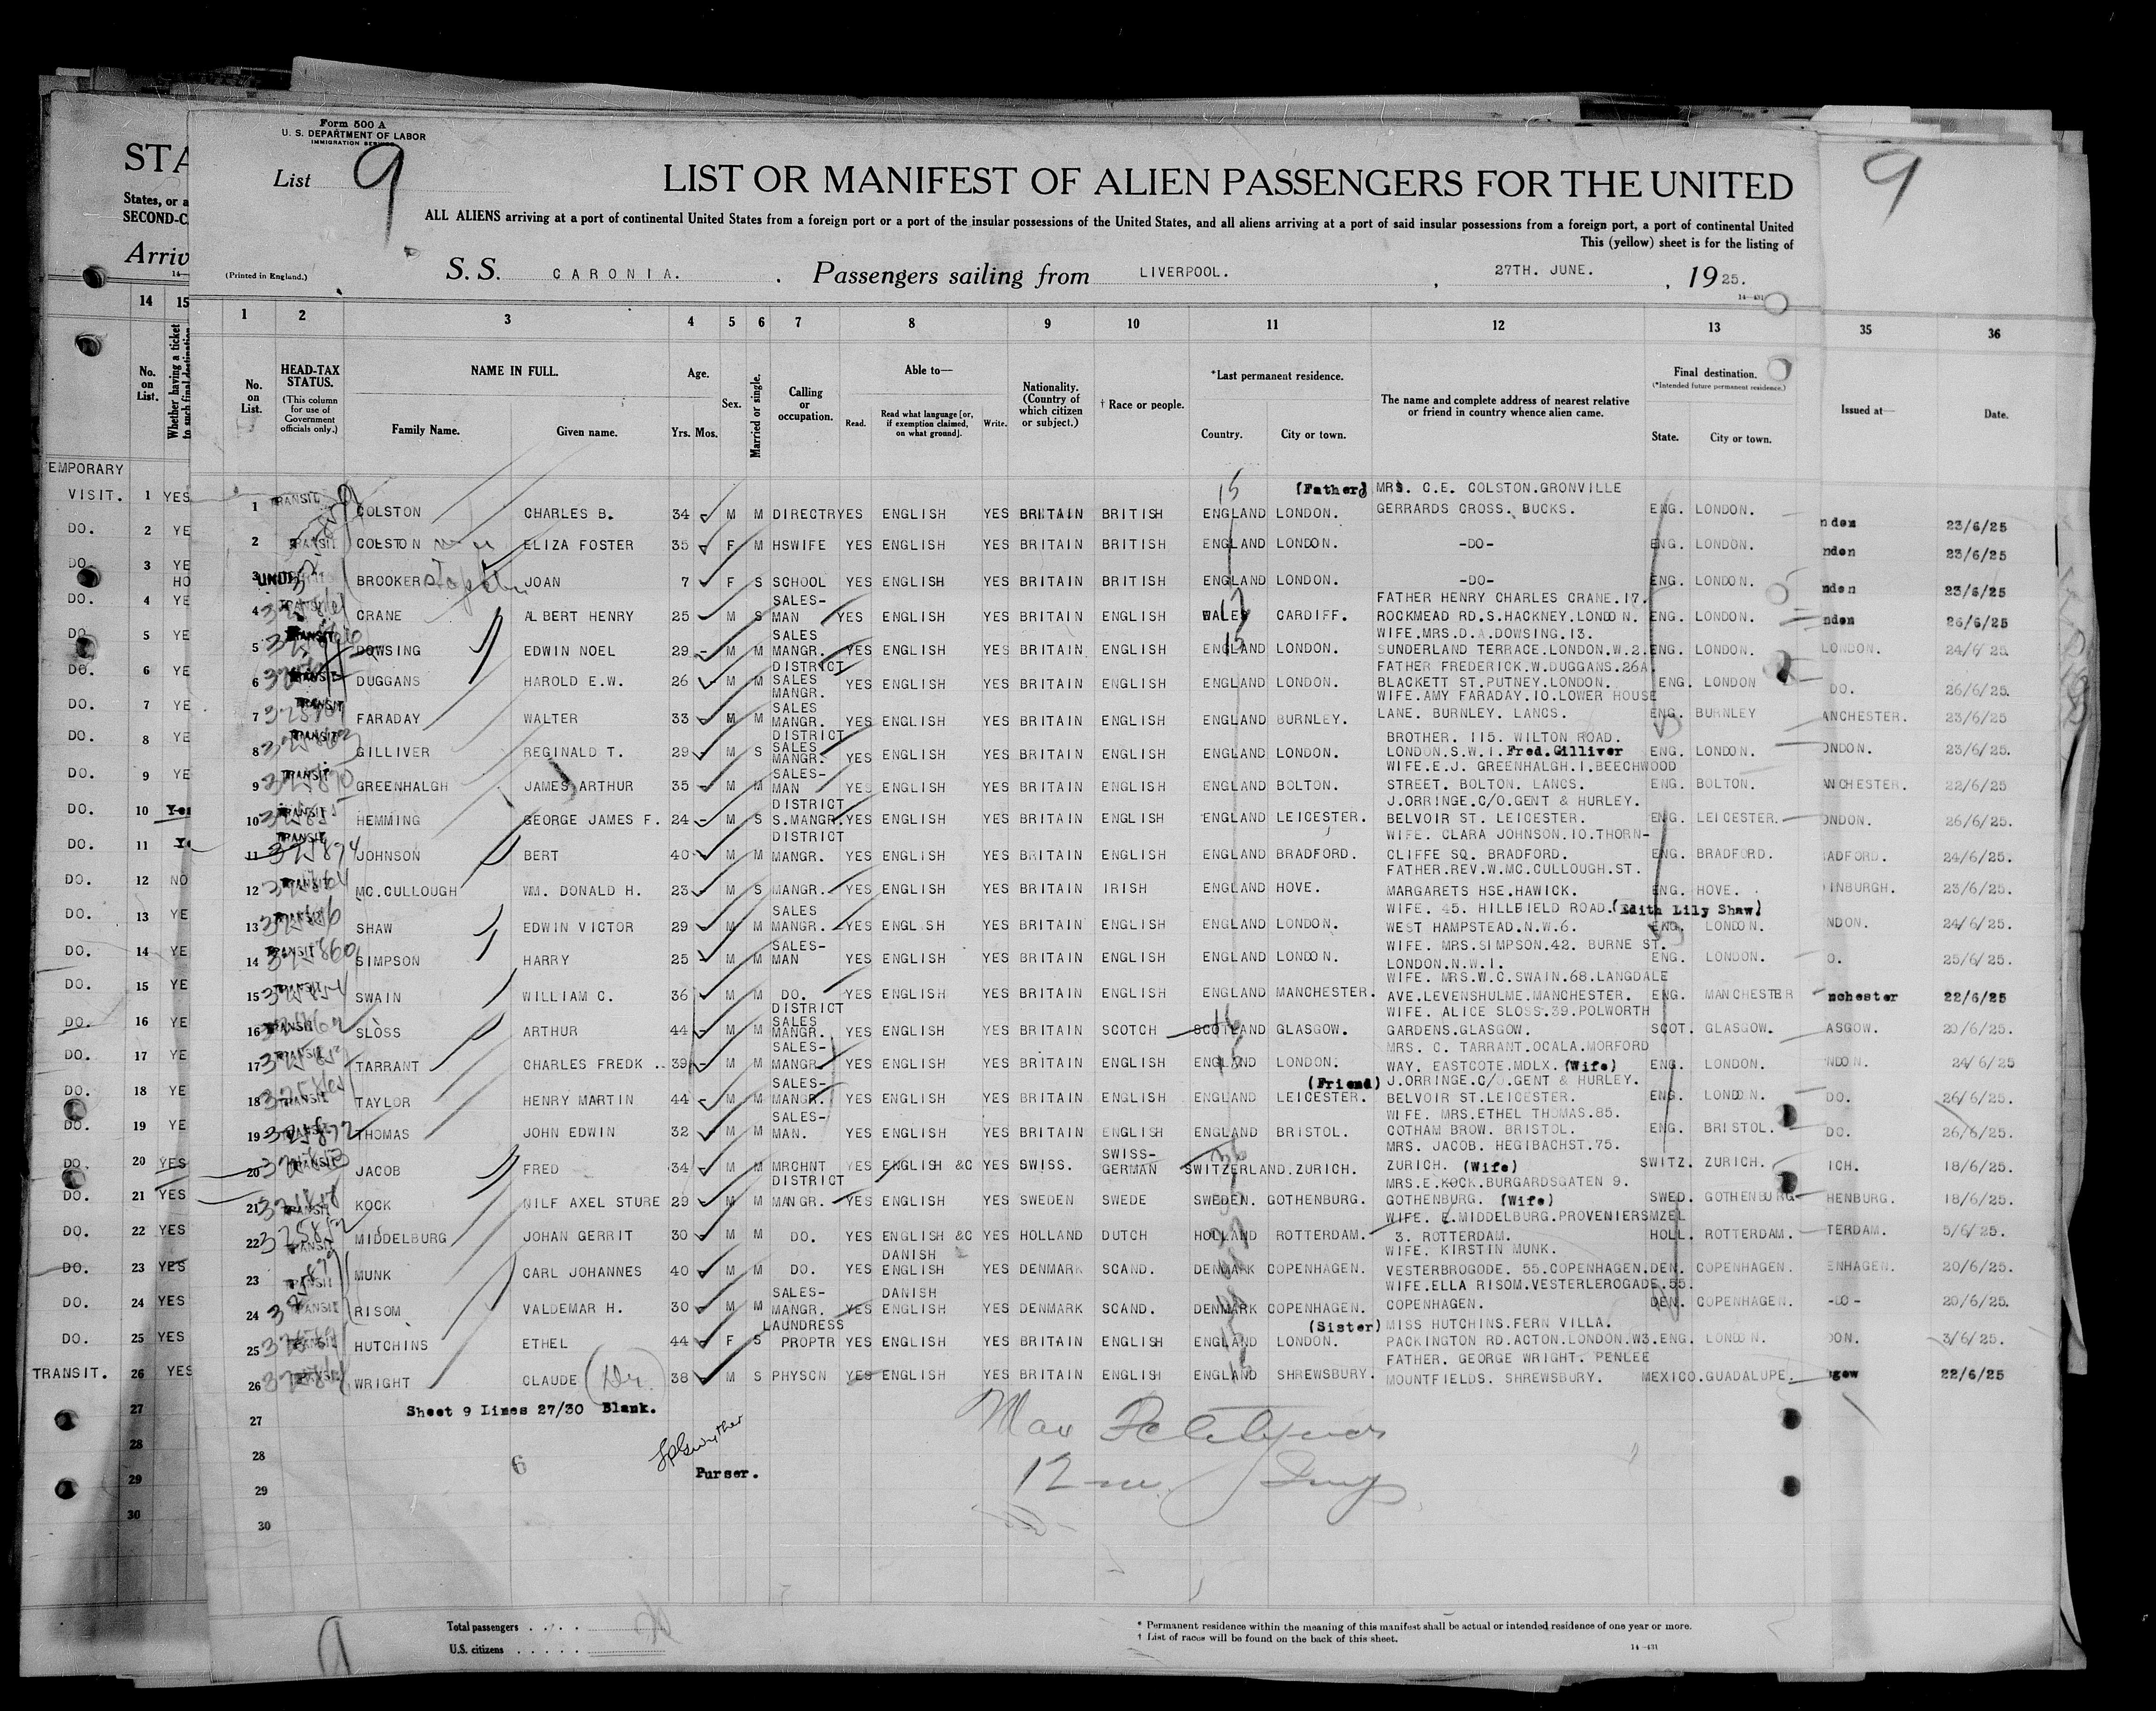 Form 500 A
U. S. DEPARTMENT OF LABOR
IMMIGRATION SERVICE
List 9
LIST OR MANIFEST OF ALIEN PASSENGERS FOR THE UNITED
9
STA
States, or a
SECOND-C
Arriv
ALL ALIENS arriving at a port of continental United States from a foreign port or a port of the insular possessions of the United States, and all aliens arriving at a port of said insular possessions from a foreign port, a port of continental United
This (yellow) sheet is for the listing of
(Printed in England.)
S. S. CARONIA. Passengers sailing from LIVERPOOL. , 27TH. JUNE. , 1925.
14—431
14 15 1 2 3 4 5 6 7 8 9 10 11 12 13 35 36
No. on List.
Whether having a ticket to such final destination
No. on List.
HEAD-TAX STATUS.
(This column for use of Government officials only.)
NAME IN FULL.
Family Name. Given name.
Age.
Yrs. Mos.
Sex.
Married or single.
Calling or occupation.
Able to—
Read. Read what language [or, if exemption claimed, on what ground]. Write.
Nationality. (Country of which citizen or subject.)
† Race or people.
*Last permanent residence.
Country. City or town.
The name and complete address of nearest relative or friend in country whence alien came.
Final destination.
(*Intended future permanent residence.)
State. City or town.
Issued at— Date.
EMPORARY
15 (Father) MRS. C.E. COLSTON.GRONVILLE
VISIT. 1 YES 1 TRANSIT COLSTON CHARLES B. 34 M M DIRECTR YES ENGLISH YES BRITAIN BRITISH ENGLAND LONDON. GERRARDS CROSS. BUCKS. ENG. LONDON. nden 23/6/25
DO. 2 YE 2 TRANSIT COLSTON ELIZA FOSTER 35 F M HSWIFE YES ENGLISH YES BRITAIN BRITISH ENGLAND LONDON. -DO- ENG. LONDON. nden 23/6/25
DO 3 YE HO 3 UNDER BROOKER JOAN 7 F S SCHOOL YES ENGLISH YES BRITAIN BRITISH ENGLAND LONDON. -DO- ENG. LONDON. nden 23/6/25
SALES- FATHER HENRY CHARLES CRANE.17.
DO. 4 YE 4 TRANSIT CRANE ALBERT HENRY 25 M S MAN YES ENGLISH YES BRITAIN ENGLISH WALES CARDIFF. ROCKMEAD RD.S.HACKNEY.LONDON. ENG. LONDON. nden 26/6/25
SALES WIFE.MRS.D.A.DOWSING.13.
DO 5 YE 5 TRANSIT DOWSING EDWIN NOEL 29 M M MANGR. YES ENGLISH YES BRITAIN ENGLISH ENGLAND LONDON. SUNDERLAND TERRACE.LONDON.W.2. ENG. LONDON. LONDON. 24/6/25
DISTRICT FATHER FREDERICK.W.DUGGANS.26A.
DO. 6 YE 6 TRANSIT DUGGANS HAROLD E.W. 26 M M SALES MANGR. YES ENGLISH YES BRITAIN ENGLISH ENGLAND LONDON. BLACKETT ST.PUTNEY.LONDON. ENG. LONDON DO. 26/6/25.
SALES WIFE.AMY FARADAY.10.LOWER HOUSE
DO. 7 YE 7 TRANSIT FARADAY WALTER 33 M M MANGR. YES ENGLISH YES BRITAIN ENGLISH ENGLAND BURNLEY. LANE. BURNLEY. LANCS. ENG. BURNLEY ANCHESTER. 23/6/25
DISTRICT BROTHER. 115. WILTON ROAD.
DO. 8 YE 8 TRANSIT GILLIVER REGINALD T. 29 M S SALES MANGR. YES ENGLISH YES BRITAIN ENGLISH ENGLAND LONDON. LONDON.S.W.1.Fred.Gilliver ENG. LONDON. ONDON. 23/6/25
SALES- WIFE.E.J. GREENHALGH.1.BEECHWOOD
DO. 9 YE 9 TRANSIT GREENHALGH JAMES ARTHUR 35 M M MAN YES ENGLISH YES BRITAIN ENGLISH ENGLAND BOLTON. STREET. BOLTON. LANCS. ENG. BOLTON. ANCHESTER. 22/6/25
DISTRICT J.ORRINGE.C/O.GENT & HURLEY.
DO. 10 Yes 10 TRANSIT HEMMING GEORGE JAMES F. 24 M S S.MANGR. YES ENGLISH YES BRITAIN ENGLISH ENGLAND LEICESTER. BELVOIR ST. LEICESTER. ENG. LEICESTER. ONDON. 26/6/25.
DISTRICT WIFE. CLARA JOHNSON.10.THORN-
DO. 11 Ye 11 TRANSIT JOHNSON BERT 40 M M MANGR. YES ENGLISH YES BRITAIN ENGLISH ENGLAND BRADFORD. CLIFFE SQ. BRADFORD. ENG. BRADFORD. RADFORD. 24/6/25.
FATHER.REV.W.MC.CULLOUGH.ST.
DO. 12 NO 12 TRANSIT MC.CULLOUGH WM. DONALD H. 23 M S MANGR. YES ENGLISH YES BRITAIN IRISH ENGLAND HOVE. MARGARETS HSE.HAWICK. ENG. HOVE. INBURGH. 23/6/25.
SALES WIFE. 45. HILLFIELD ROAD.(Edith Lily Shaw)
DO. 13 YE 13 TRANSIT SHAW EDWIN VICTOR 29 M M MANGR. YES ENGLISH YES BRITAIN ENGLISH ENGLAND LONDON. WEST HAMPSTEAD.N.W.6. ENG. LONDON. NDON. 24/6/25.
SALES- WIFE. MRS.SIMPSON.42. BURNE ST.
DO. 14 YE 14 TRANSIT SIMPSON HARRY 25 M M MAN YES ENGLISH YES BRITAIN ENGLISH ENGLAND LONDON. LONDON.N.W.1. ENG. LONDON. O. 25/6/25.
WIFE. MRS.W.C.SWAIN.68.LANGDALE
DO. 15 YE 15 TRANSIT SWAIN WILLIAM C. 36 M M DO. YES ENGLISH YES BRITAIN ENGLISH ENGLAND MANCHESTER. AVE.LEVENSHULME.MANCHESTER. ENG. MANCHESTER nchester 22/6/25
DISTRICT WIFE. ALICE SLOSS.39.POLWORTH
DO. 16 YE 16 TRANSIT SLOSS ARTHUR 44 M M SALES MANGR. YES ENGLISH YES BRITAIN SCOTCH SCOTLAND GLASGOW. GARDENS.GLASGOW. SCOT. GLASGOW. ASGOW. 20/6/25.
SALES- MRS. C. TARRANT.OCALA.MORFORD
DO. 17 YE 17 TRANSIT TARRANT CHARLES FREDK .. 39 M M MANGR. YES ENGLISH YES BRITAIN ENGLISH ENGLAND LONDON. WAY. EASTCOTE.MDLX. (Wife) ENG. LONDON. NDON. 24/6/25
SALES- (Friend) J.ORRINGE.C/O.GENT & HURLEY.
DO. 18 YE 18 TRANSIT TAYLOR HENRY MARTIN 44 M M MANGR. YES ENGLISH YES BRITAIN ENGLISH ENGLAND LEICESTER. BELVOIR ST.LEICESTER. ENG. LONDON. DO. 26/6/25.
SALES- WIFE. MRS.ETHEL THOMAS.85.
DO. 19 YE 19 TRANSIT THOMAS JOHN EDWIN 32 M M MAN. YES ENGLISH YES BRITAIN ENGLISH ENGLAND BRISTOL. COTHAM BROW. BRISTOL. ENG. BRISTOL. DO. 26/6/25.
SWISS- MRS. JACOB. HEGIBACHST.75.
DO. 20 YES 20 TRANSIT JACOB FRED 34 M M MRCHNT YES ENGLISH &C YES SWISS. GERMAN SWITZERLAND.ZURICH. ZURICH. (Wife) SWITZ. ZURICH. ICH. 18/6/25.
DISTRICT MRS.E.KOCK.BURGARDSGATEN 9.
DO. 21 YES 21 TRANSIT KOCK NILF AXEL STURE 29 M M MANGR. YES ENGLISH YES SWEDEN SWEDE SWEDEN. GOTHENBURG. GOTHENBURG. (Wife) SWED. GOTHENBURG HENBURG. 18/6/25.
WIFE. E.MIDDELBURG.PROVENIERSMZEL
DO. 22 YES 22 TRANSIT MIDDELBURG JOHAN GERRIT 30 M M DO. YES ENGLISH &C YES HOLLAND DUTCH HOLLAND ROTTERDAM. 3. ROTTERDAM. HOLL. ROTTERDAM. TERDAM. 5/6/25.
DANISH WIFE. KIRSTIN MUNK.
DO. 23 YES 23 TRANSIT MUNK CARL JOHANNES 40 M M DO. YES ENGLISH YES DENMARK SCAND. DENMARK COPENHAGEN. VESTERBROGODE. 55.COPENHAGEN. DEN. COPENHAGEN. ENHAGEN. 20/6/25.
SALES- DANISH WIFE.ELLA RISOM.VESTERLEROGADE.55.
DO. 24 YES 24 TRANSIT RISOM VALDEMAR H. 30 M M MANGR. YES ENGLISH YES DENMARK SCAND. DENMARK COPENHAGEN. COPENHAGEN. DEN. COPENHAGEN. -DO- 20/6/25.
LAUNDRESS (Sister) MISS HUTCHINS.FERN VILLA.
DO. 25 YES 25 TRANSIT HUTCHINS ETHEL 44 F S PROPTR YES ENGLISH YES BRITAIN ENGLISH ENGLAND LONDON. PACKINGTON RD.ACTON.LONDON.W3. ENG. LONDON. DON. 3/6/25.
FATHER. GEORGE WRIGHT. PENLEE
TRANSIT. 26 YES 26 TRANSIT WRIGHT CLAUDE (Dr.) 38 M S PHYSCN YES ENGLISH YES BRITAIN ENGLISH ENGLAND SHREWSBURY. MOUNTFIELDS. SHREWSBURY. MEXICO.GUADALUPE. gow 22/6/25
27 27 Sheet 9 Lines 27/30 Blank.
28 28 6
Purser.
29 29
30 30
9
Total passengers . . . .
U.S. citizens . . . . .
* Permanent residence within the meaning of this manifest shall be actual or intended residence of one year or more.
† List of races will be found on the back of this sheet.
14—431